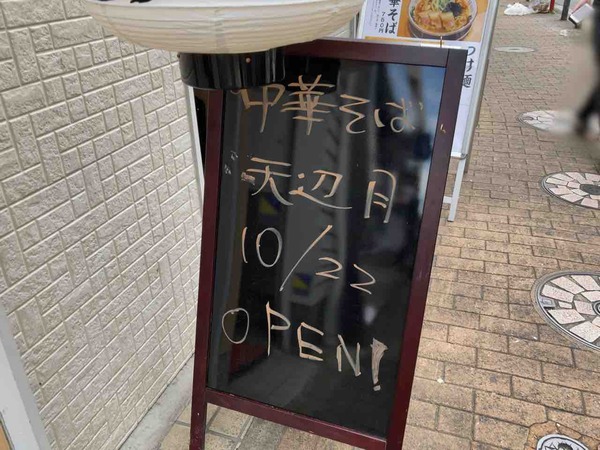 中華そば
天辺月
10/22
OPEN!
華そば
780円
つけ麺